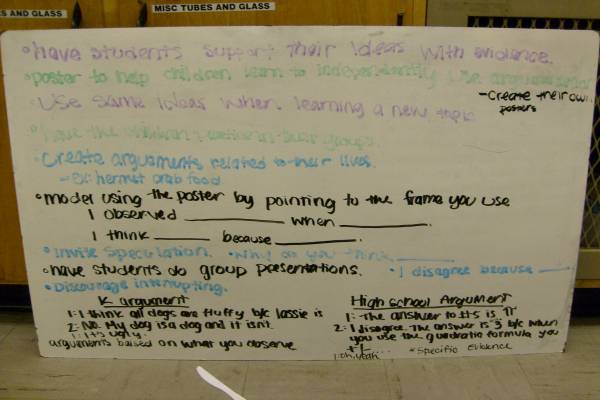 S AND GLASS
MISC TUBES AND GLASS
• have students support their ideas with evidence.
• poster to help children learn to independently use
- Create their own posters
• Use same ideas when learning a new topic
• have the children in their groups.
• Create arguments related to their lives.
- Ex: hermit crab food
• model using the poster by pointing to the frame you use
I observed ______ when ______.
I think ______ because ______.
• Invite Speculation. • Why do you think ______
• have students do group presentations. • I disagree because ____
• Discourage interrupting.
K argument
1: I think all dogs are fluffy b/c lassie is
2: No. My dog is a dog and it isn't.
1: It's ugly.
arguments based on what you observe
High school Argument
1: - the answer to #5 is π
2: I disagree. The answer is 3 b/c when
you use the quadratic formula you
1: oh, yeah
* Specific evidence